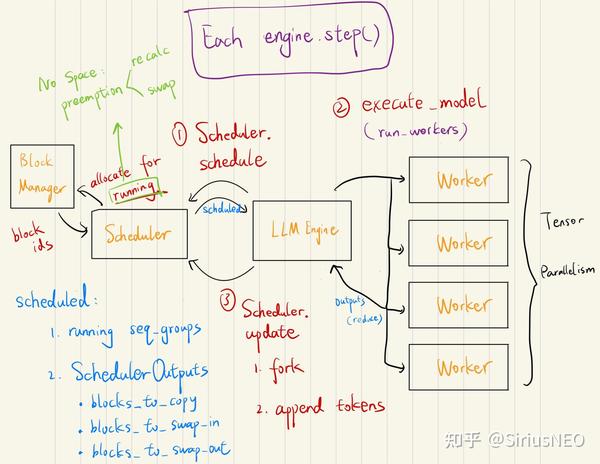 Each engine.step()
No Space:
preemption
recalc
swap
① Scheduler.
schedule
② execute_model
(run_workers)
Block
Manager
allocate for
running
block
ids
Scheduler
schduled
LLM Engine
Worker
Worker
Worker
Worker
Tensor
Parallelism
outputs
(reduce)
③ Scheduler.
update
1. fork
2. append tokens
scheduled:
1. running seq_groups
2. SchedulerOutputs
• blocks_to_copy
• blocks_to_swap_in
• blocks_to_swap_out
知乎 @SiriusNEO